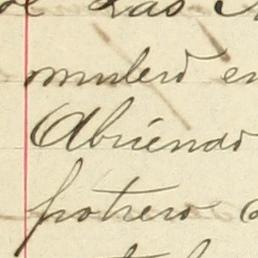 Las
mulero en
Abriendo
potrero